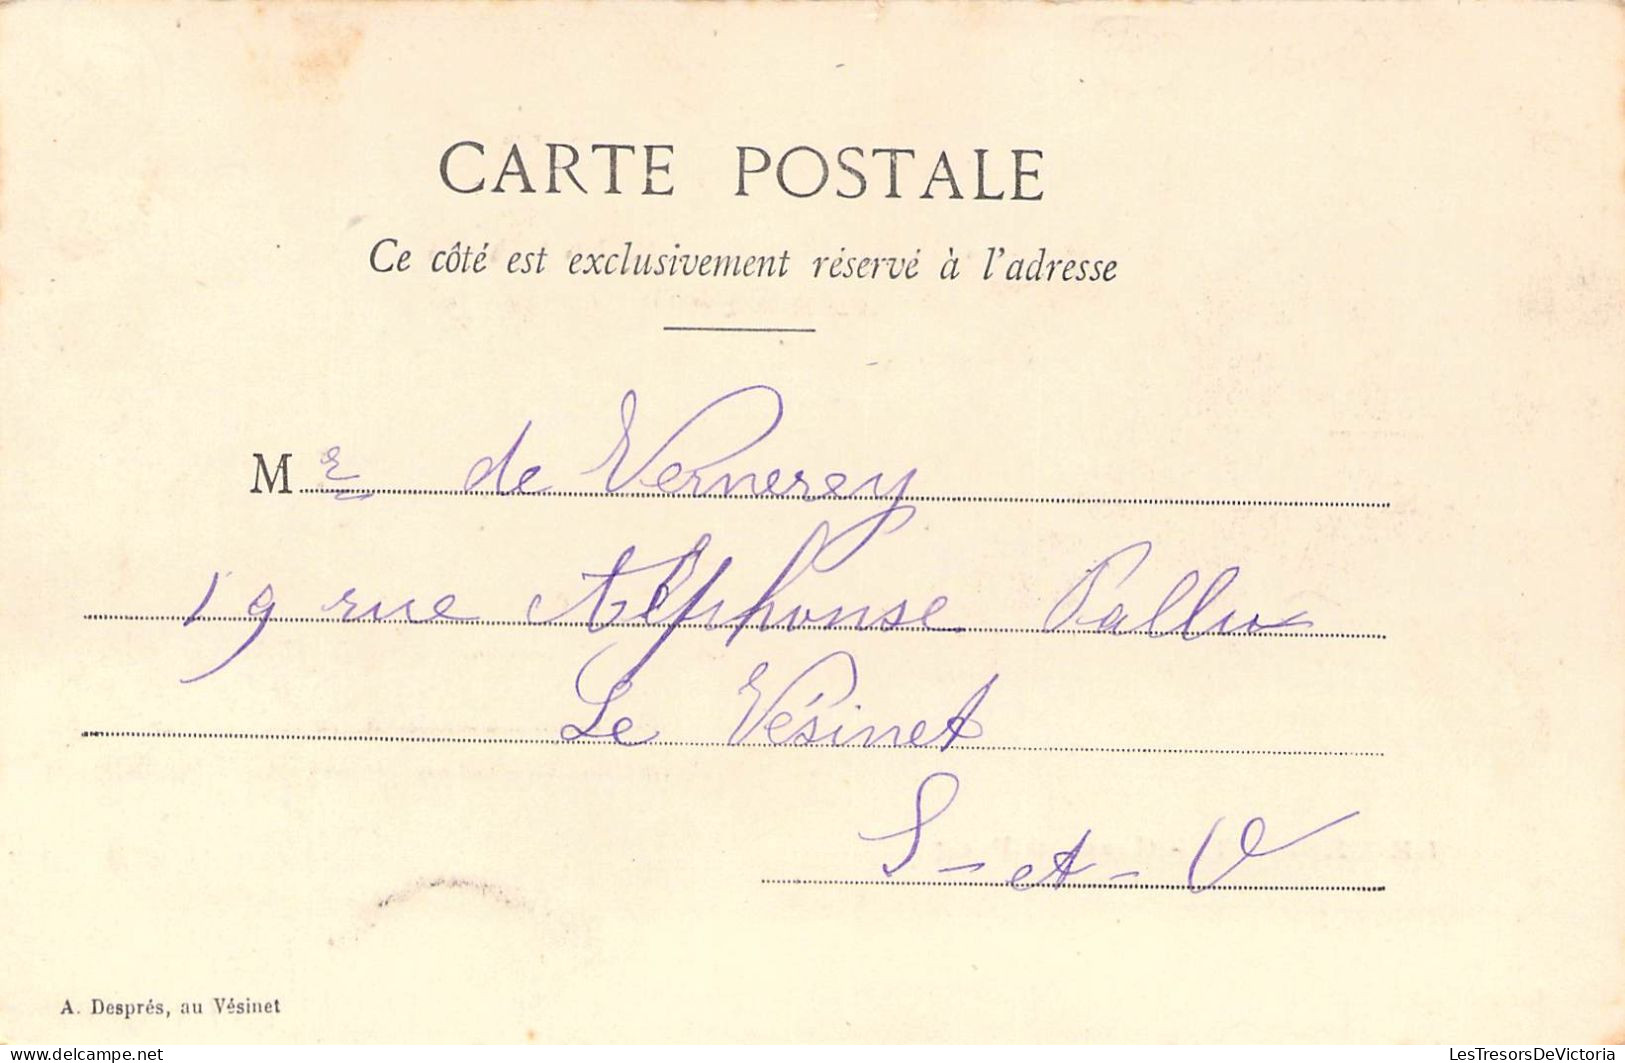 CARTE POSTALE
Ce côté est exclusivement réservé à l'adresse
Mr de Vernerey
19 rue Alphonse Pallu
Le Vésinet
S-et-V
A. Després, au Vésinet
delcampe.net
LesTresorsDeVictoria